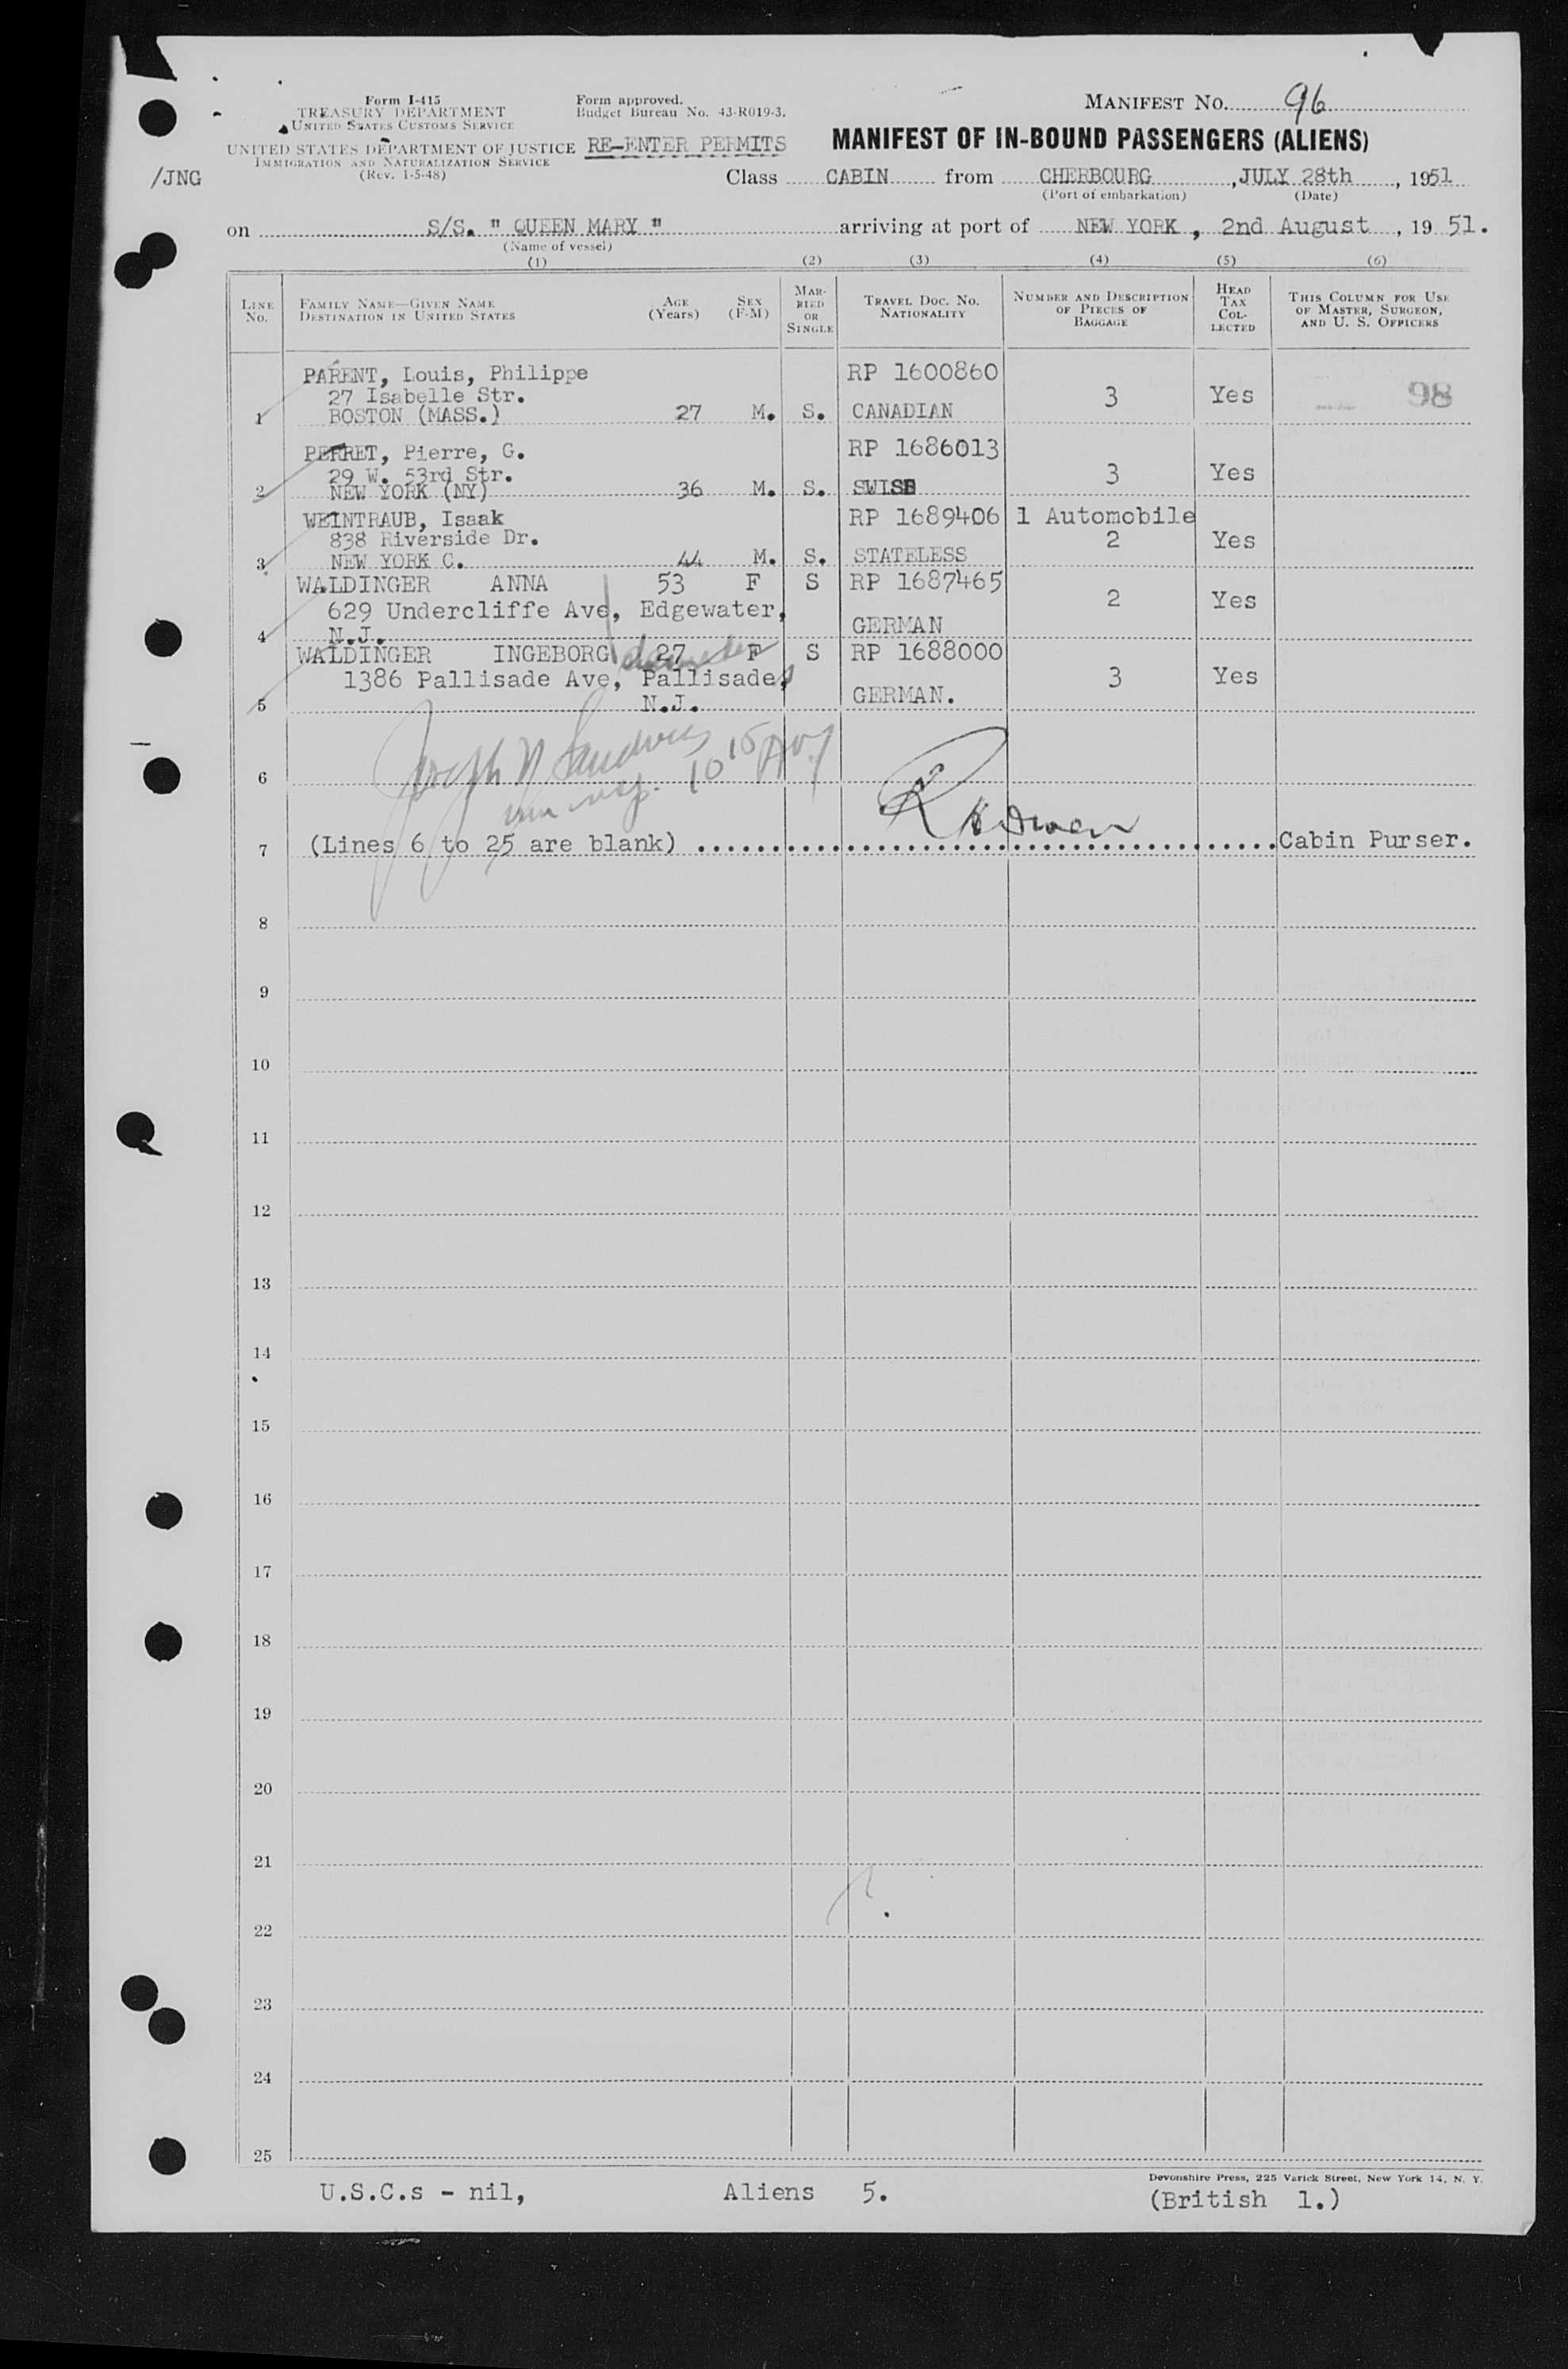 Form I-415
TREASURY DEPARTMENT
UNITED STATES CUSTOMS SERVICE
UNITED STATES DEPARTMENT OF JUSTICE
IMMIGRATION AND NATURALIZATION SERVICE
(Rev. 1-5-48)
/JNG
Form approved.
Budget Bureau No. 43-R019-3.
RE-ENTER PERMITS
MANIFEST NO. 96
MANIFEST OF IN-BOUND PASSENGERS (ALIENS)
Class CABIN from CHERBOURG, JULY 28th, 1951
(Port of embarkation) (Date)
on S/S. " QUEEN MARY " arriving at port of NEW YORK, 2nd August, 19 51.
(Name of vessel)
(1) (2) (3) (4) (5) (6)
LINE NO.
FAMILY NAME—GIVEN NAME
DESTINATION IN UNITED STATES
AGE (Years)
SEX (F-M)
MARRIED OR SINGLE
TRAVEL DOC. NO.
NATIONALITY
NUMBER AND DESCRIPTION OF PIECES OF BAGGAGE
HEAD TAX COLLECTED
THIS COLUMN FOR USE OF MASTER, SURGEON, AND U. S. OFFICERS
PARENT, Louis, Philippe RP 1600860
27 Isabelle Str. 3 Yes 98
1 BOSTON (MASS.) 27 M. S. CANADIAN
PERRET, Pierre, G. RP 1686013
29 W. 53rd Str. 3 Yes
2 NEW YORK (NY) 36 M. S. SWISS
WEINTRAUB, Isaak RP 1689406 1 Automobile
838 Riverside Dr. 2 Yes
3 NEW YORK C. 44 M. S. STATELESS
WALDINGER ANNA 53 F S RP 1687465
629 Undercliffe Ave, Edgewater, 2 Yes
4 N.J. GERMAN
WALDINGER INGEBORG 27 F S RP 1688000
1386 Pallisade Ave, Pallisade, 3 Yes
5 N.J. GERMAN.
6
7 (Lines 6 to 25 are blank) Cabin Purser.
8
9
10
11
12
13
14
15
16
17
18
19
20
21
22
23
24
25
Devonshire Press, 225 Varick Street, New York 14, N. Y.
U.S.C.s - nil, Aliens 5. (British 1.)